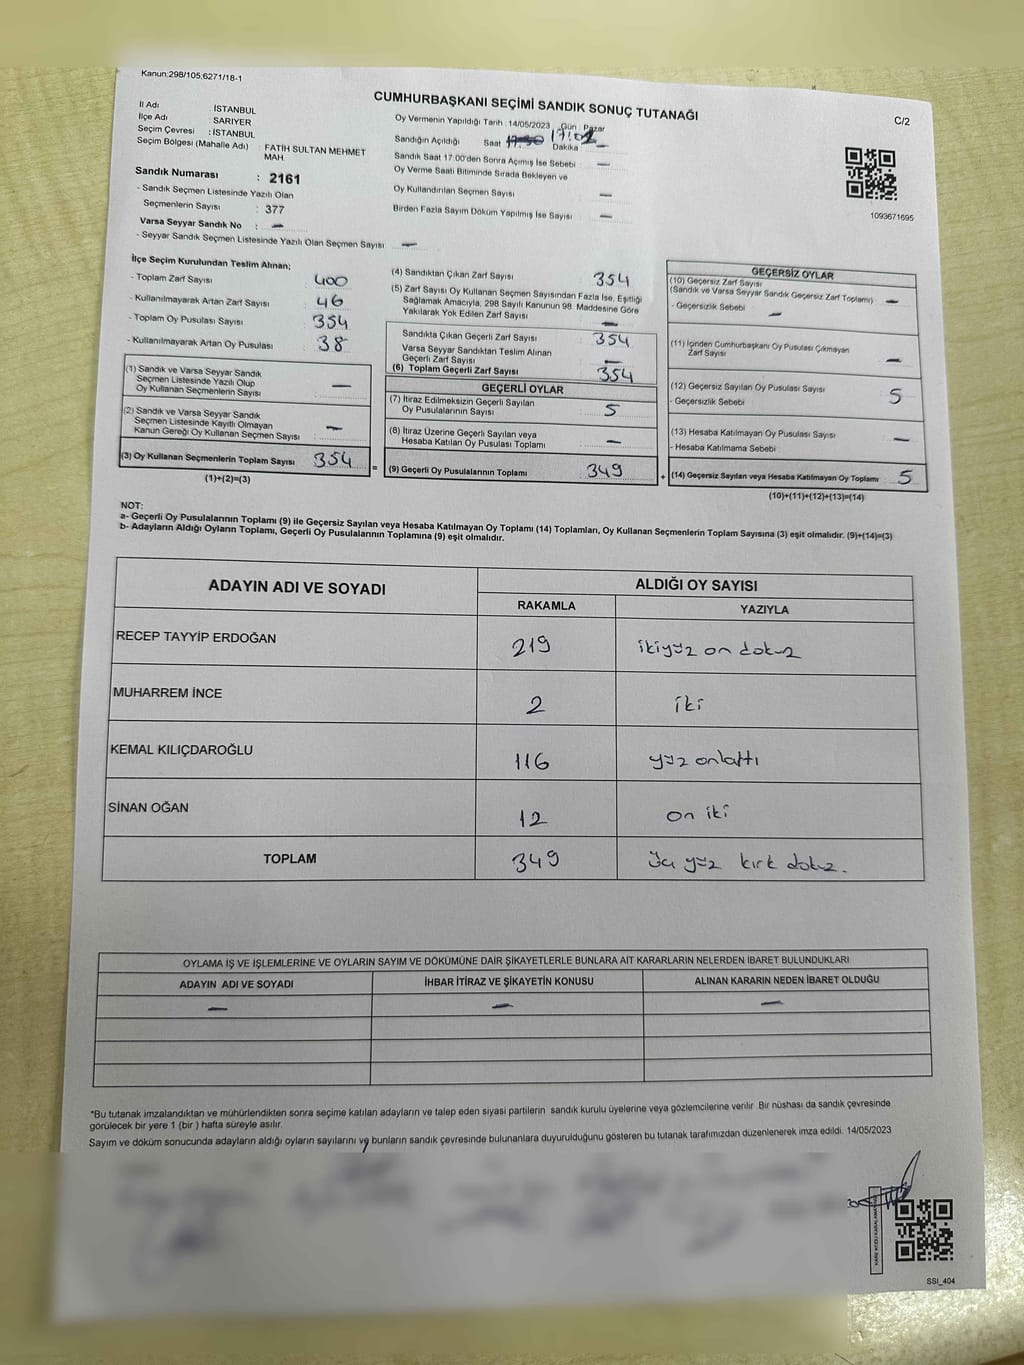 Kanun;298/105;6271/18-1
CUMHURBAŞKANI SEÇİMİ SANDIK SONUÇ TUTANAĞI
C/2
İl Adı İSTANBUL
İlçe Adı SARIYER
Seçim Çevresi : İSTANBUL
Seçim Bölgesi (Mahalle Adı) : FATİH SULTAN MEHMET
MAH.
Sandık Numarası : 2161
- Sandık Seçmen Listesinde Yazılı Olan
Seçmenlerin Sayısı : 377
Varsa Seyyar Sandık No : —
- Seyyar Sandık Seçmen Listesinde Yazılı Olan Seçmen Sayısı —
Oy Vermenin Yapıldığı Tarih : 14/05/2023 Gün : Pazar
Sandığın Açıldığı Saat 17:02 Dakika —
Sandık Saat 17.00'den Sonra Açımış İse Sebebi —
Oy Verme Saati Bitiminde Sırada Bekleyen ve
Oy Kullandırılan Seçmen Sayısı —
Birden Fazla Sayım Döküm Yapılmış İse Sayısı —
1093671695
İlçe Seçim Kurulundan Teslim Alınan;
- Toplam Zarf Sayısı 400
- Kullanılmayarak Artan Zarf Sayısı 46
- Toplam Oy Pusulası Sayısı 354
- Kullanılmayarak Artan Oy Pusulası 38
(1) Sandık ve Varsa Seyyar Sandık
Seçmen Listesinde Yazılı Olup
Oy Kullanan Seçmenlerin Sayısı —
(2) Sandık ve Varsa Seyyar Sandık
Seçmen Listesinde Kayıtlı Olmayan
Kanun Gereği Oy Kullanan Seçmen Sayısı —
(3) Oy Kullanan Seçmenlerin Toplam Sayısı 354
(1)+(2)=(3)
=
(4) Sandıktan Çıkan Zarf Sayısı 354
(5) Zarf Sayısı Oy Kullanan Seçmen Sayısından Fazla İse, Eşitliği
Sağlamak Amacıyla; 298 Sayılı Kanunun 98. Maddesine Göre
Yakılarak Yok Edilen Zarf Sayısı —
Sandıkta Çıkan Geçerli Zarf Sayısı 354
Varsa Seyyar Sandıktan Teslim Alınan
Geçerli Zarf Sayısı —
(6) Toplam Geçerli Zarf Sayısı 354
GEÇERLİ OYLAR
(7) İtiraz Edilmeksizin Geçerli Sayılan
Oy Pusulalarının Sayısı 5
(8) İtiraz Üzerine Geçerli Sayılan veya
Hesaba Katılan Oy Pusulası Toplamı —
(9) Geçerli Oy Pusulalarının Toplamı 349
+
GEÇERSİZ OYLAR
(10) Geçersiz Zarf Sayısı
(Sandık ve Varsa Seyyar Sandık Geçersiz Zarf Toplamı) —
- Geçersizlik Sebebi —
(11) İçinden Cumhurbaşkanı Oy Pusulası Çıkmayan
Zarf Sayısı —
(12) Geçersiz Sayılan Oy Pusulası Sayısı 5
- Geçersizlik Sebebi
(13) Hesaba Katılmayan Oy Pusulası Sayısı —
- Hesaba Katılmama Sebebi
(14) Geçersiz Sayılan veya Hesaba Katılmayan Oy Toplamı 5
(10)+(11)+(12)+(13)=(14)
NOT:
a- Geçerli Oy Pusulalarının Toplamı (9) ile Geçersiz Sayılan veya Hesaba Katılmayan Oy Toplamı (14) Toplamları, Oy Kullanan Seçmenlerin Toplam Sayısına (3) eşit olmalıdır. (9)+(14)=(3)
b- Adayların Aldığı Oyların Toplamı, Geçerli Oy Pusulalarının Toplamına (9) eşit olmalıdır.
ADAYIN ADI VE SOYADI ALDIĞI OY SAYISI
RAKAMLA YAZIYLA
RECEP TAYYİP ERDOĞAN 219 ikiyüz on dokuz
MUHARREM İNCE 2 iki
KEMAL KILIÇDAROĞLU 116 yüz onaltı
SİNAN OĞAN 12 on iki
TOPLAM 349 üç yüz kırk dokuz.
OYLAMA İŞ VE İŞLEMLERİNE VE OYLARIN SAYIM VE DÖKÜMÜNE DAİR ŞİKAYETLERLE BUNLARA AİT KARARLARIN NELERDEN İBARET BULUNDUKLARI
ADAYIN ADI VE SOYADI İHBAR İTİRAZ VE ŞİKAYETİN KONUSU ALINAN KARARIN NEDEN İBARET OLDUĞU
— — —
*Bu tutanak imzalandıktan ve mühürlendikten sonra seçime katılan adayların ve talep eden siyasi partilerin sandık kurulu üyelerine veya gözlemcilerine verilir Bir nüshası da sandık çevresinde
görülecek bir yere 1 (bir ) hafta süreyle asılır.
Sayım ve döküm sonucunda adayların aldığı oyların sayılarını ve bunların sandık çevresinde bulunanlara duyurulduğunu gösteren bu tutanak tarafımızdan düzenlenerek imza edildi. 14/05/2023
SSI_404